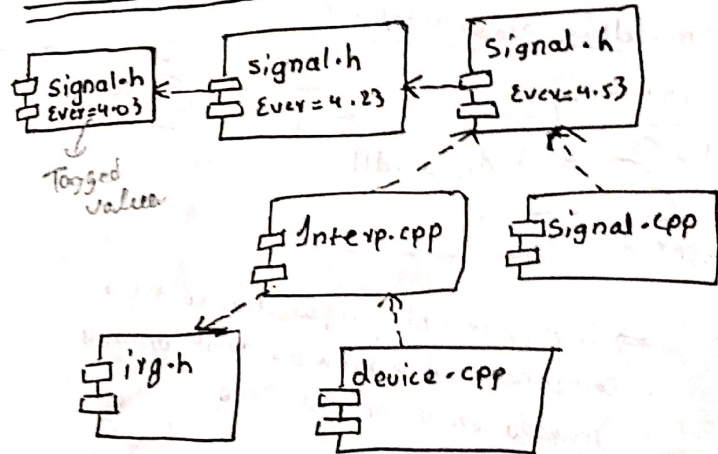 signal.h
{ver=4.03}
Tagged
values
signal.h
{ver=4.23}
signal.h
{ver=4.53}
Interp.cpp
Signal.cpp
irg.h
device.cpp